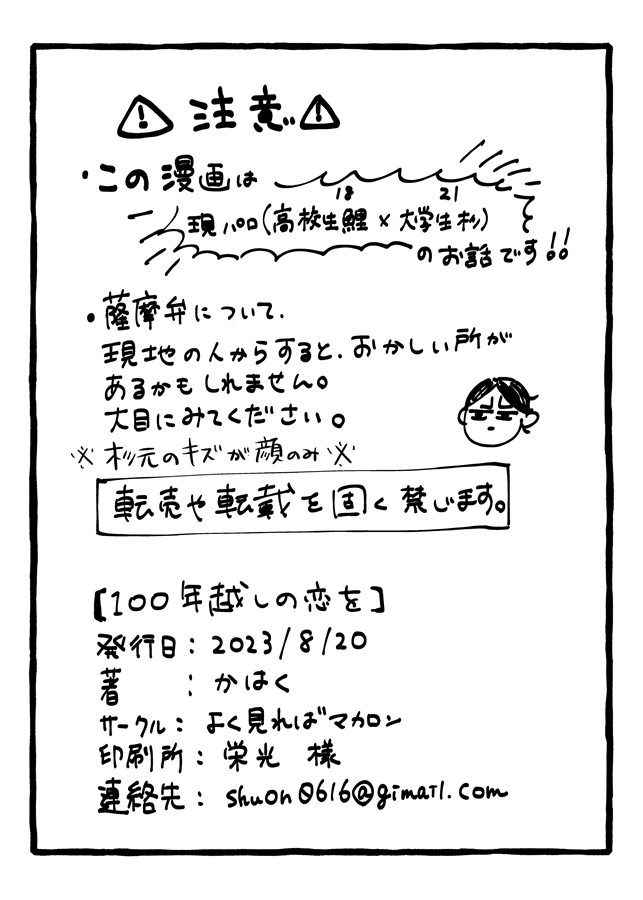 ⚠注意⚠
・この漫画は
18 21
現パロ(高校生鯉×大学生杉)
のお話です!!
・薩摩弁について.
現地の人からすると、おかしい所が
あるかもしれません。
大目にみてください。
※杉元のキズが顔のみ※
転売や転載を固く禁じます。
【100年越しの恋を】
発行日:2023/8/20
著 :かはく
サークル:よく見ればマカロン
印刷所:栄光 様
連絡先:shuon0616@gimail.com